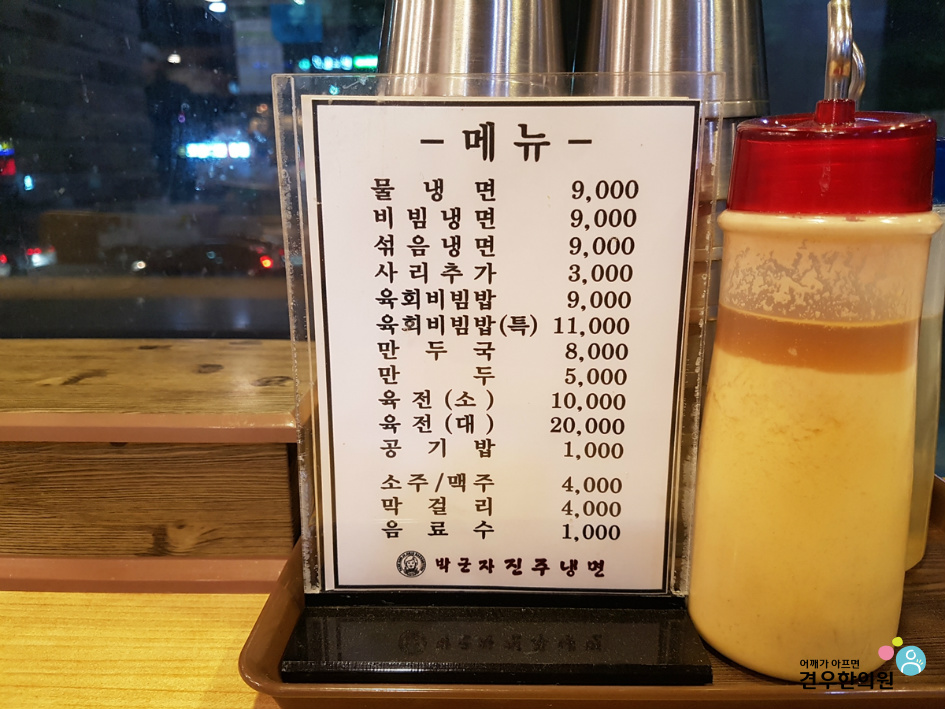 - 메뉴 -
물냉면 9,000
비빔냉면 9,000
섞음냉면 9,000
사리추가 3,000
육회비빔밥 9,000
육회비빔밥(특) 11,000
만두국 8,000
만두 5,000
육전(소) 10,000
육전(대) 20,000
공기밥 1,000
소주/맥주 4,000
막걸리 4,000
음료수 1,000
박군자진주냉면
어깨가 아프면
견우한의원